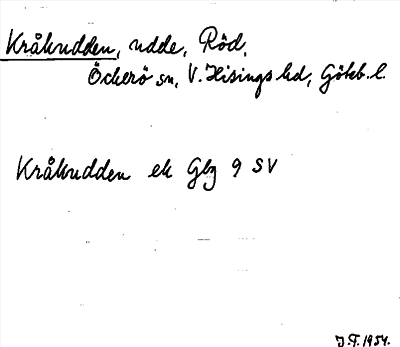 Kråkudden, udde, Röd,
Öckerö sn, V. Hisings hd, Götb. l.
Kråkudden ek Gbg 9 SV
J.F. 1954.